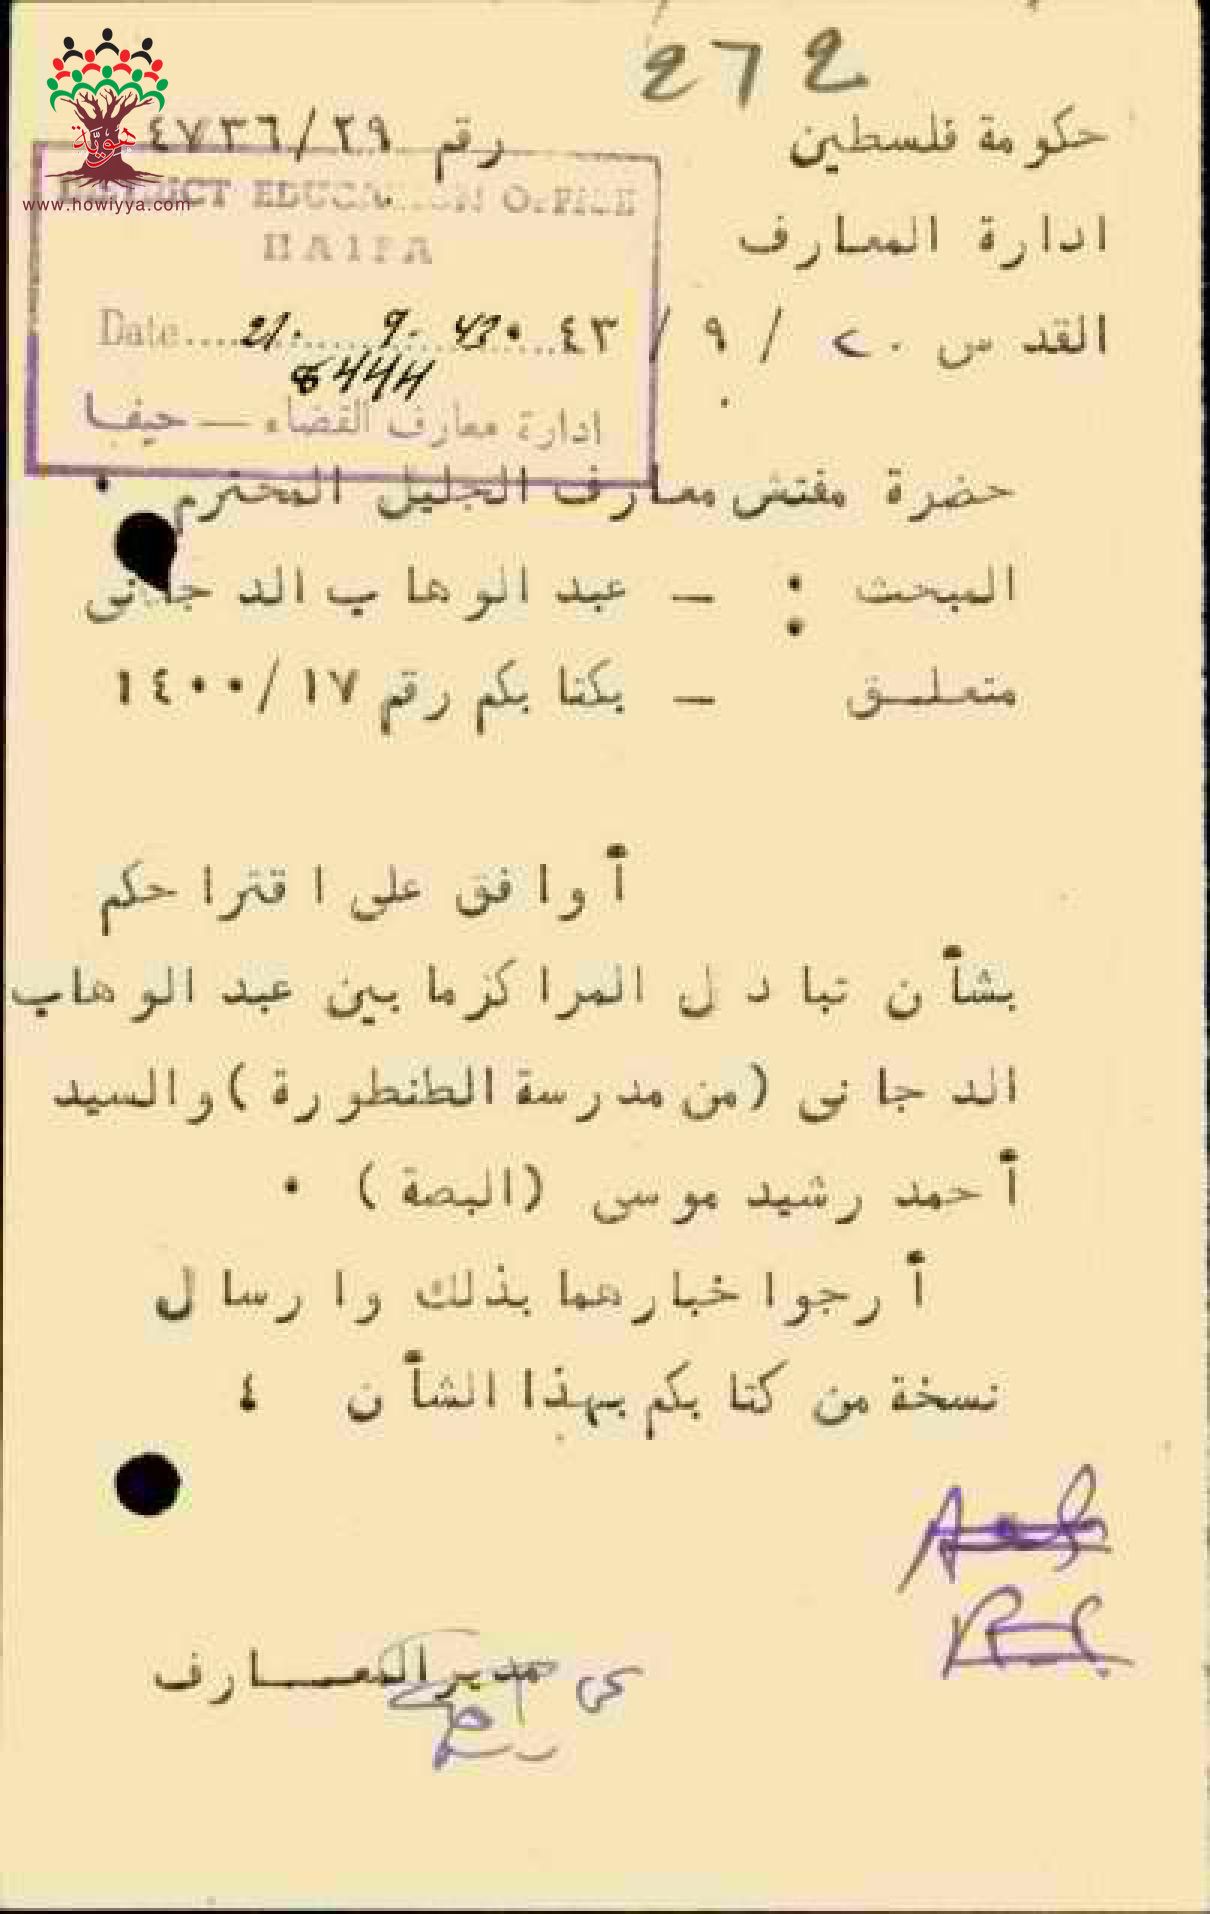 272
حكومة فلسطين
رقم ٤٧٣٦/٢٩
هويّة
www.howiyya.com
DISTRICT EDUCATION OFFICE
HAIFA
ادارة المعارف
القدس ٢٠ / ٩ / ٤٣
Date.... 21. 9. 43
ادارة معارف القضاء — حيفا
حضرة مفتش معارف الجليل المحترم ٠
المبحث : - عبد الوهاب الدجاني
متعلـــق - بكتابكم رقم ١٤٠٠/١٧
أوافق على اقتراحكم
بشأن تبادل المراكز ما بين عبد الوهاب
الدجاني (من مدرسة الطنطورة) والسيد
أحمد رشيد موسى (البصة) ٠
أرجو اخبارهما بذلك وارسال
نسخة من كتابكم بهذا الشأن ٤
مدير المعـــارف